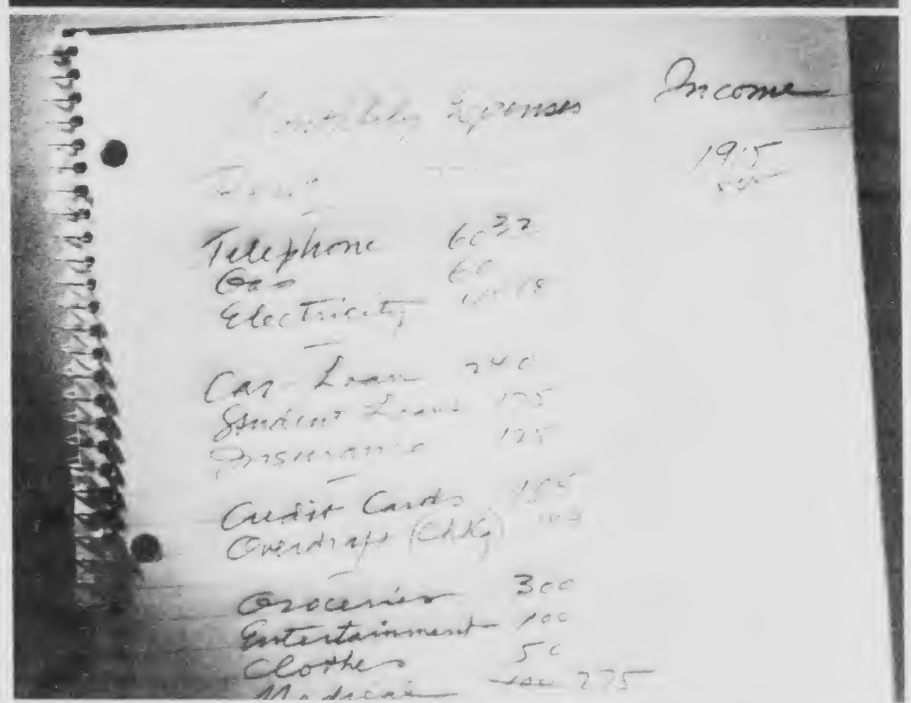 Monthly Expenses Income
Rent
Telephone 60 32
Gas 60
Electricity
Car Loan 240
Student Loans 175
Insurance 125
Credit Cards
Overdraft (Chkg)
Groceries 300
Entertainment 100
Clothes 50
Medical 275